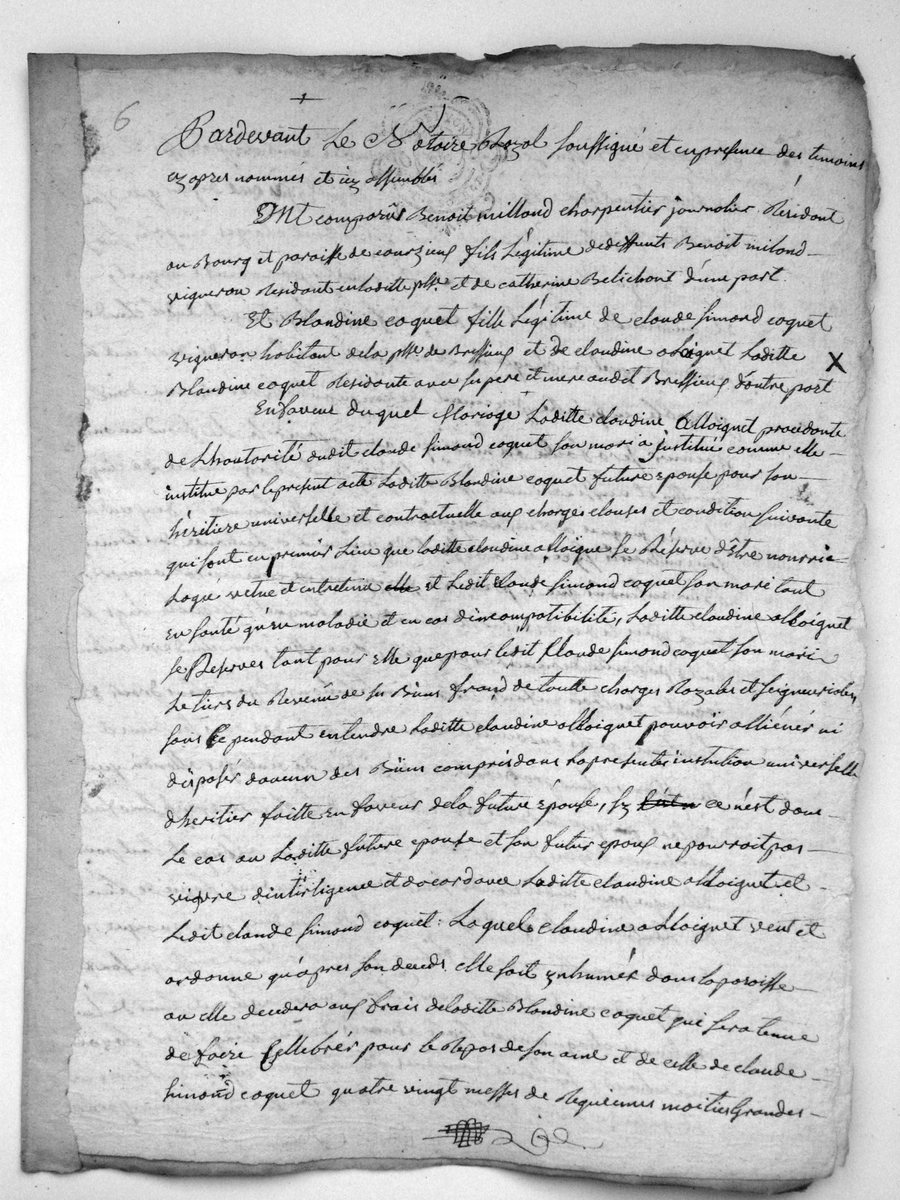 6
Pardevant Le Notoire Royal soussigné et en presence des temoins
cy apres nommés et icy assemblés
Ont comparûs Benoit milland charpentier journalier Résidant
au Bourg et paroisse de courzieu fils Légitime de deffunts Benoit miland
vigneron Residant en laditte psse et de catherine Betichard d'une part
Et Blandine coquet fille Légitime de claude Simond coquet
vigneron habitant de la psse de Brussieu et de claudine alloignet Laditte X
Blandine coquet Residante avec ses pere et mere audit Brussieu d'autre part
En faveur duquel Mariage Laditte claudine Alloignet procedante
de L'hautorité dudit claude Simond coquet son mari a Justitué comme elle
institue par le present acte Laditte Blandine coquet future epouse pour son
héritiere universelle et contractuelle aux charge clauses et condition suivante
qui sont en premier Lieu que laditte claudine alloigne se Réserve d'être nourrie
Logée vetue et entretenue elle et Ledit claude Simond coquet son mari tant
En santé qu'en maladie et en cas d'incompatibilité, Laditte claudine alloignet
se Réserves tant pour Elle que pour ledit Claude Simond coquet son mari
Le tiers du Revenû de ses Biens frand de toutte charges Royales et seigneuriales
sans Ce pendant entendre Laditte claudine alloignet pouvoir alliéner ni
disposér d'aucun des Biens compris dans la presentes instution universelle
d'heritier faitte en faveur de la future Epouse, sy ce n'est dans
Le cas ou Laditte future epouse et son futur epoux ne pourroit pas
vivre d'intirligence et d'acord avec Laditte claudine alloignet et
Ledit claude Simond coquet: Laquele claudine alloignet veut et
ordonne qu'apres son deceds elle soit ynhumér dans la paroisse
ou elle decedera aux frais de laditte Blandine coquet qui sera tenue
de faire Cellebrér pour le Repos de son ame et de celle de claude
Simond coquet quatre vingt messes de Requiemes moities Grandes